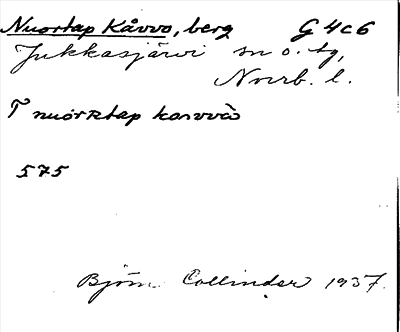 Nuortap Kåvvo, berg G 4c6
Jukkasjärvi sn o. tg,
Norrb. l.
T nuorktap
575
Björn Collinder 1937.